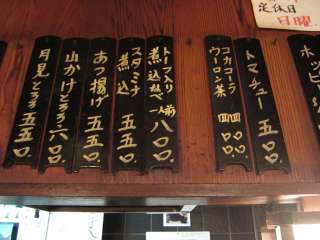 定休日
日曜
ホッピ
トマチュー 五〇〇.
コカコーラ 四〇〇
ウーロン茶 四〇〇.
トーフ入り煮込 一人前 八〇〇.
スタミナ煮込 五五〇.
あつ揚げ 五五〇.
山かけとろろ 六〇〇.
月見とろろ 五五〇.